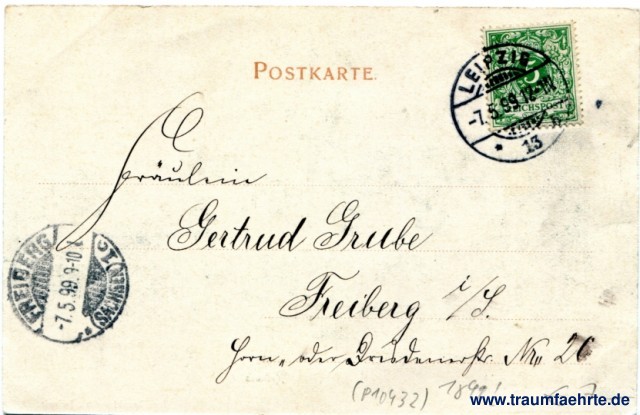 POSTKARTE.
LEIPZIG
-7.5.99.
* 13
5
REICHSPOST
Fräulein
Gertrud Grube
Freiberg i/S.
Horn- oder Dresdenerstr. No 26
FREIBERG
-7.5.99.9-10
(SACHSEN) 1
(P10432) 1899!
www.traumfaehrte.de